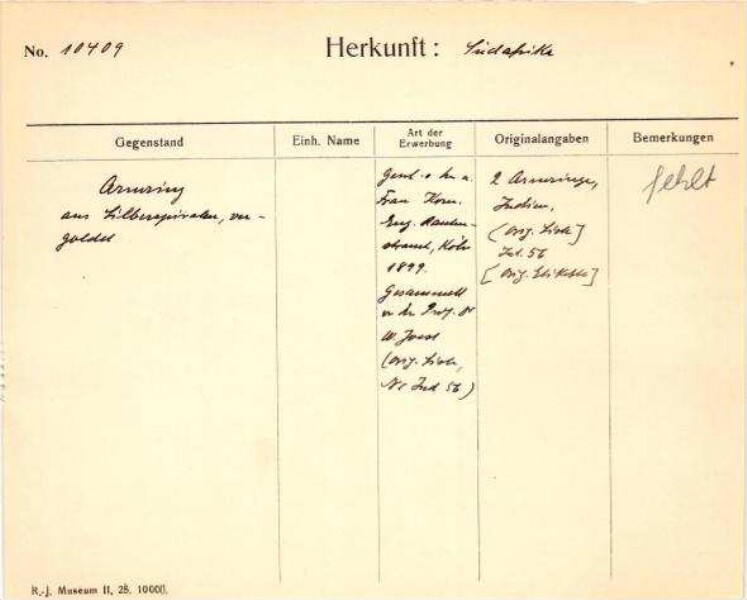 No. 10409
Herkunft: Südafrika
Gegenstand
Einh. Name
Art der
Erwerbung
Originalangaben
Bemerkungen
Armring
aus Silberspiralen, ver-
goldet
Frau Kom.
Eug. Rauten-
strauch, Köln
1899.
Gesammelt
v. d. Prof. Dr
W. Joest
(Orig. Liste,
Nr Ind 56)
2 Armringe,
Indien.
(Orig. Liste]
Ind. 56
[Orig. Etikette]
fehlt
R.-J. Museum II, 28. 10000.